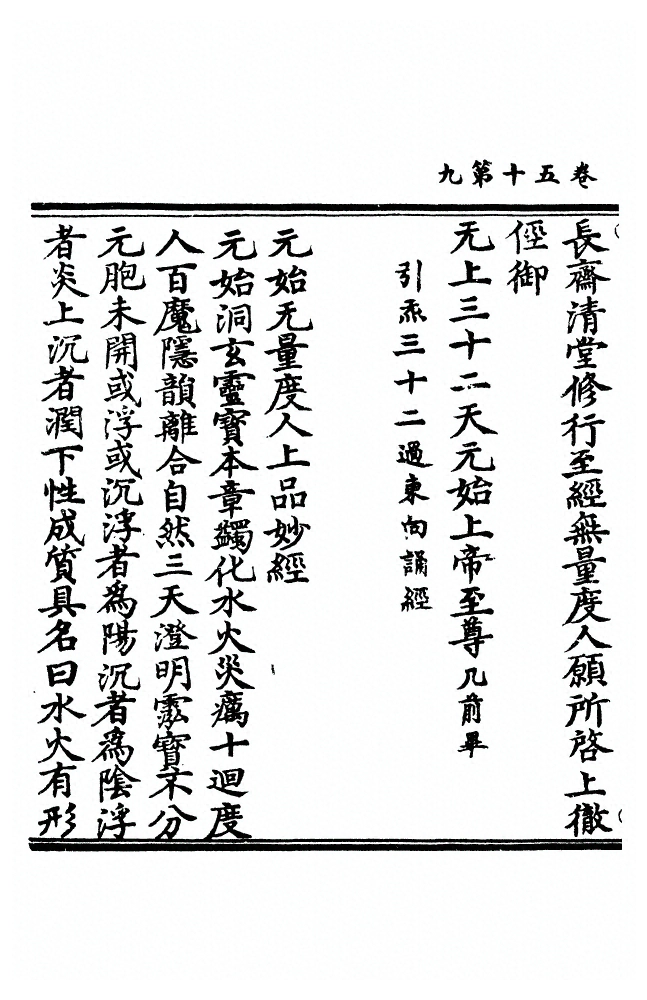 卷五十第九
長齋清堂修行至經無量度人願所啓上徹
徑御
无上三十二天元始上帝至尊几前畢
引炁三十二過東向誦經
元始无量度人上品妙經
元始洞玄靈寶本章蠲化水火災癘十迴度
人百魔隱韻離合自然三天澄明靈寶不分
元胞未開或浮或沉浮者爲陽沉者爲陰浮
者炎上沉者潤下性成質具名曰水火有形